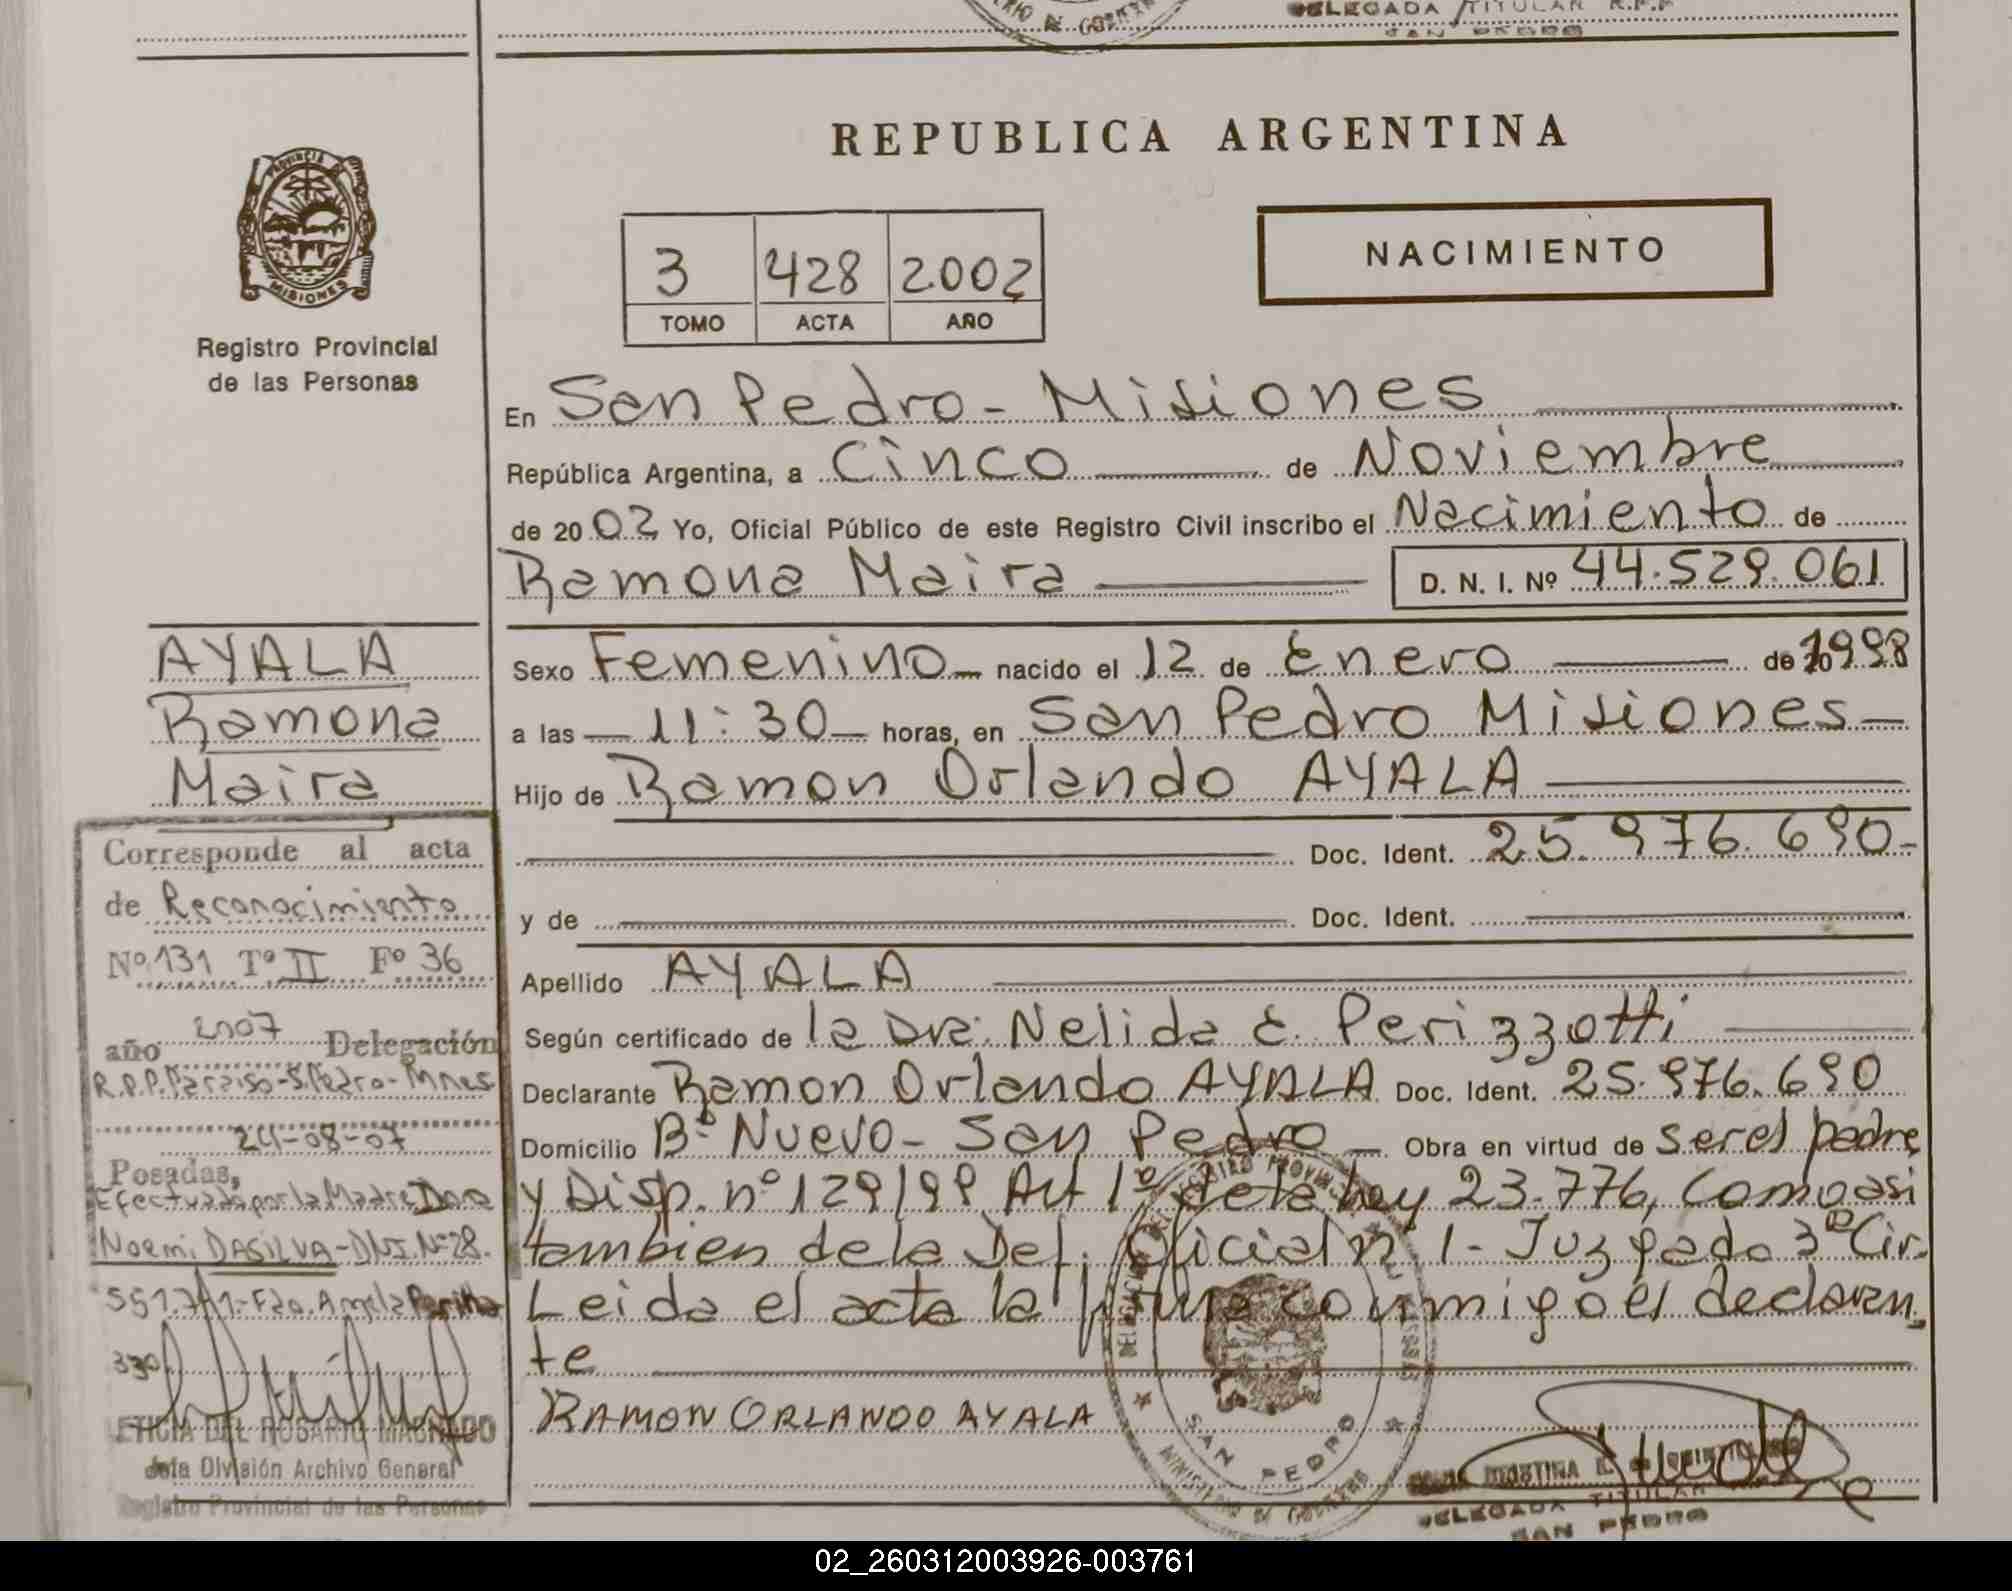 DELEGADA TITULAR R.P.P
SAN PEDRO
REPUBLICA ARGENTINA
PROVINCIA DE
MISIONES
Registro Provincial
de las Personas
3 428 2002
TOMO ACTA AÑO
NACIMIENTO
En San Pedro - Misiones
República Argentina, a Cinco de Noviembre
de 20 02 Yo, Oficial Público de este Registro Civil inscribo el Nacimiento de
Ramona Maira D. N. I. Nº 44.529.061
Sexo Femenino nacido el 12 de Enero de 1998
a las 11:30 horas, en San Pedro Misiones
Hijo de Ramon Orlando AYALA
Doc. Ident. 25.976.690
y de Doc. Ident.
Apellido AYALA
Según certificado de la Dra: Nelida E. Perizzotti
Declarante Ramon Orlando AYALA Doc. Ident. 25.976.690
Domicilio Bº Nuevo - San Pedro Obra en virtud de ser el padre
y Disp. nº 129/99 Art 1º de la ley 23.776, como asi
tambien de la Def. Oficial nº 1 - Juzgado 3º Cir.
Leida el acta la firma conmigo el declaran
te
RAMON ORLANDO AYALA
SAN PEDRO
DELEGADA TITULAR
SAN PEDRO
AYALA
Ramona
Maira
Corresponde al acta
de Reconocimiento
Nº 131 Tº II Fº 36
año 2007 Delegación
R.P.P. Paraiso - S. Pedro - Mnes
24-08-07
Posadas,
Efectuada por la Madre Dora
Noemi DASILVA - DNI. Nº 28.
551.741 - Fdo. Angela
330
LETICIA DEL ROSARIO MACHADO
Jefa División Archivo General
Registro Provincial de las Personas
02_260312003926-003761